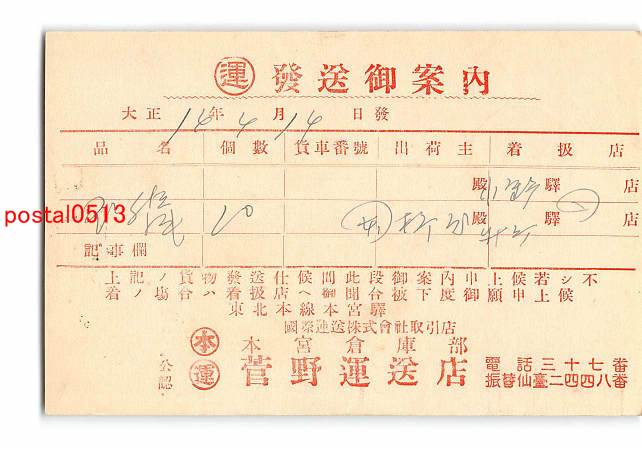 運 發送御案内
大正14年4月14日發
品名 個數 貨車番號 出荷主 着扱店
殿 驛 店
20 殿 驛 店
postal0513
記事欄
上記ノ貨物發送仕候間此段御案内申上候若シ不
着ノ場合ハ着扱店ヘ御聞合被下度御願申上候
東北本線本宮驛
國際運送株式會社取引店
本 本宮倉庫部
公認 運 菅野運送店
電話三十七番
振替仙臺二四四八番